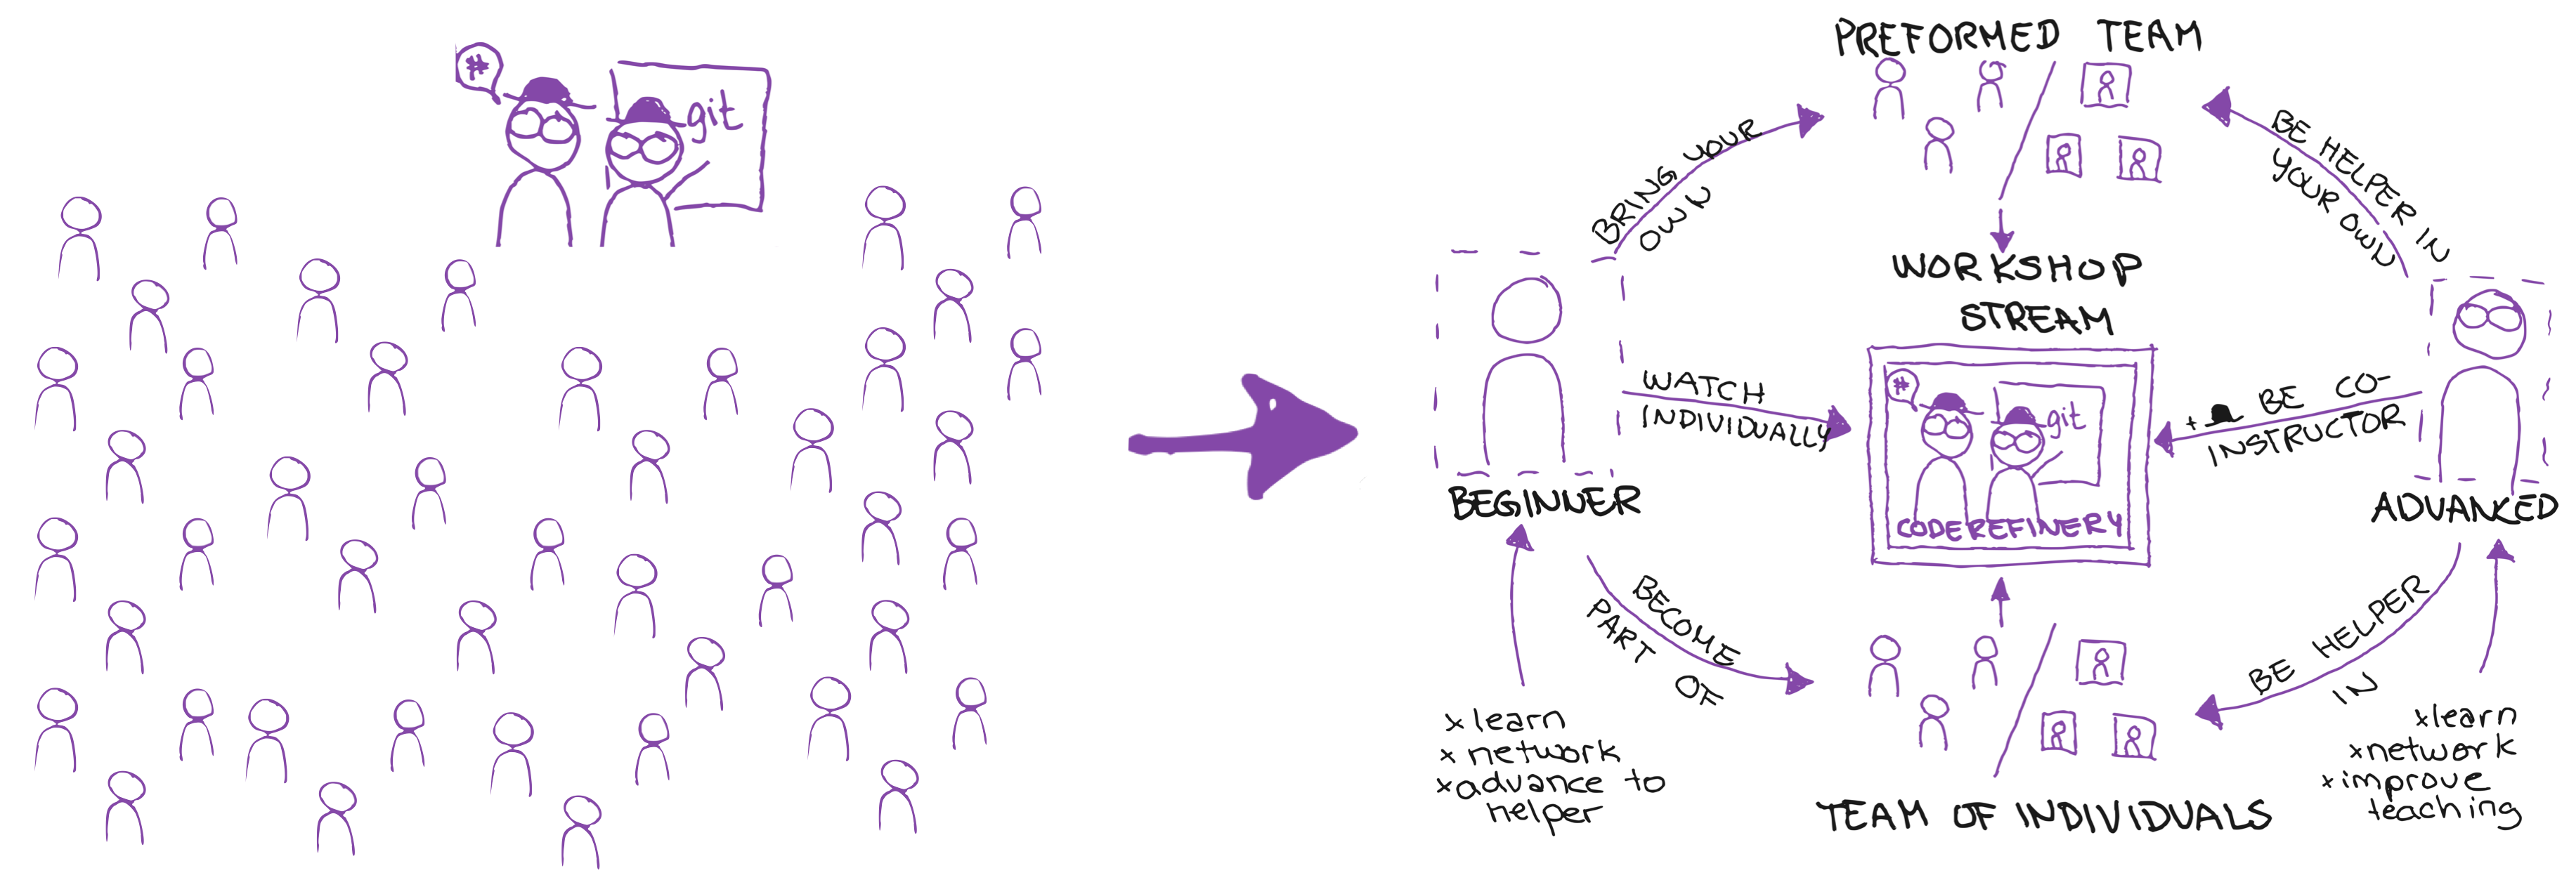 #
git
PREFORMED TEAM
BRING YOUR
OWN
BE HELPER IN
YOUR OWN
WORKSHOP
STREAM
WATCH
INDIVIDUALLY
#
git
CODEREFINERY
+ BE CO-
INSTRUCTOR
BEGINNER
ADVANCED
BECOME
PART OF
BE HELPER
IN
x learn
x network
x advance to
helper
x learn
x network
x improve
teaching
TEAM OF INDIVIDUALS